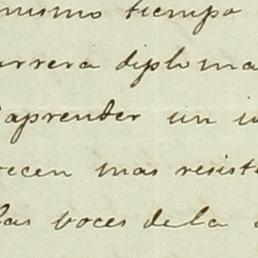 mismo tiempo
arrera diploma
aprender un i
ecen mas resist
las voces dela